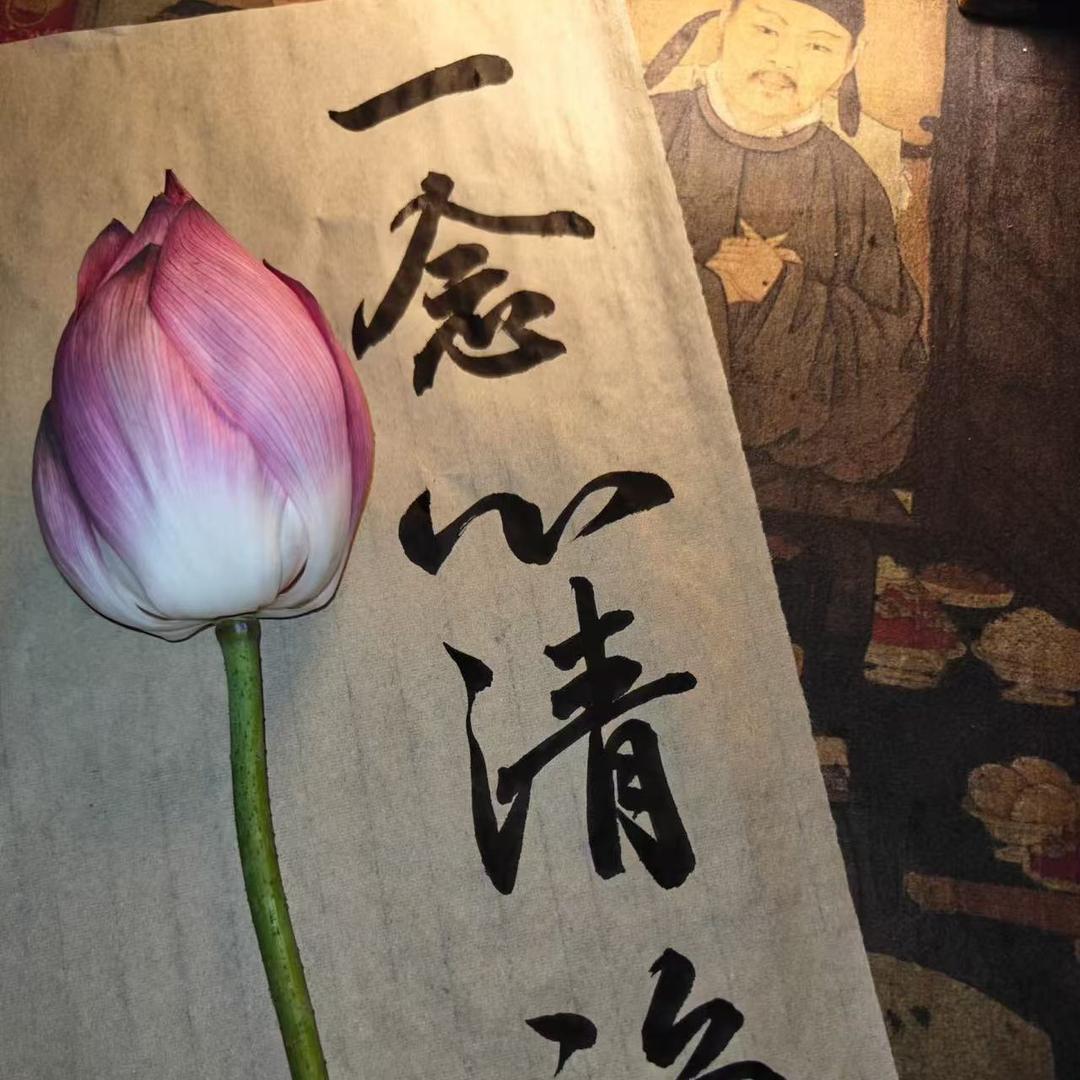 一念心清净